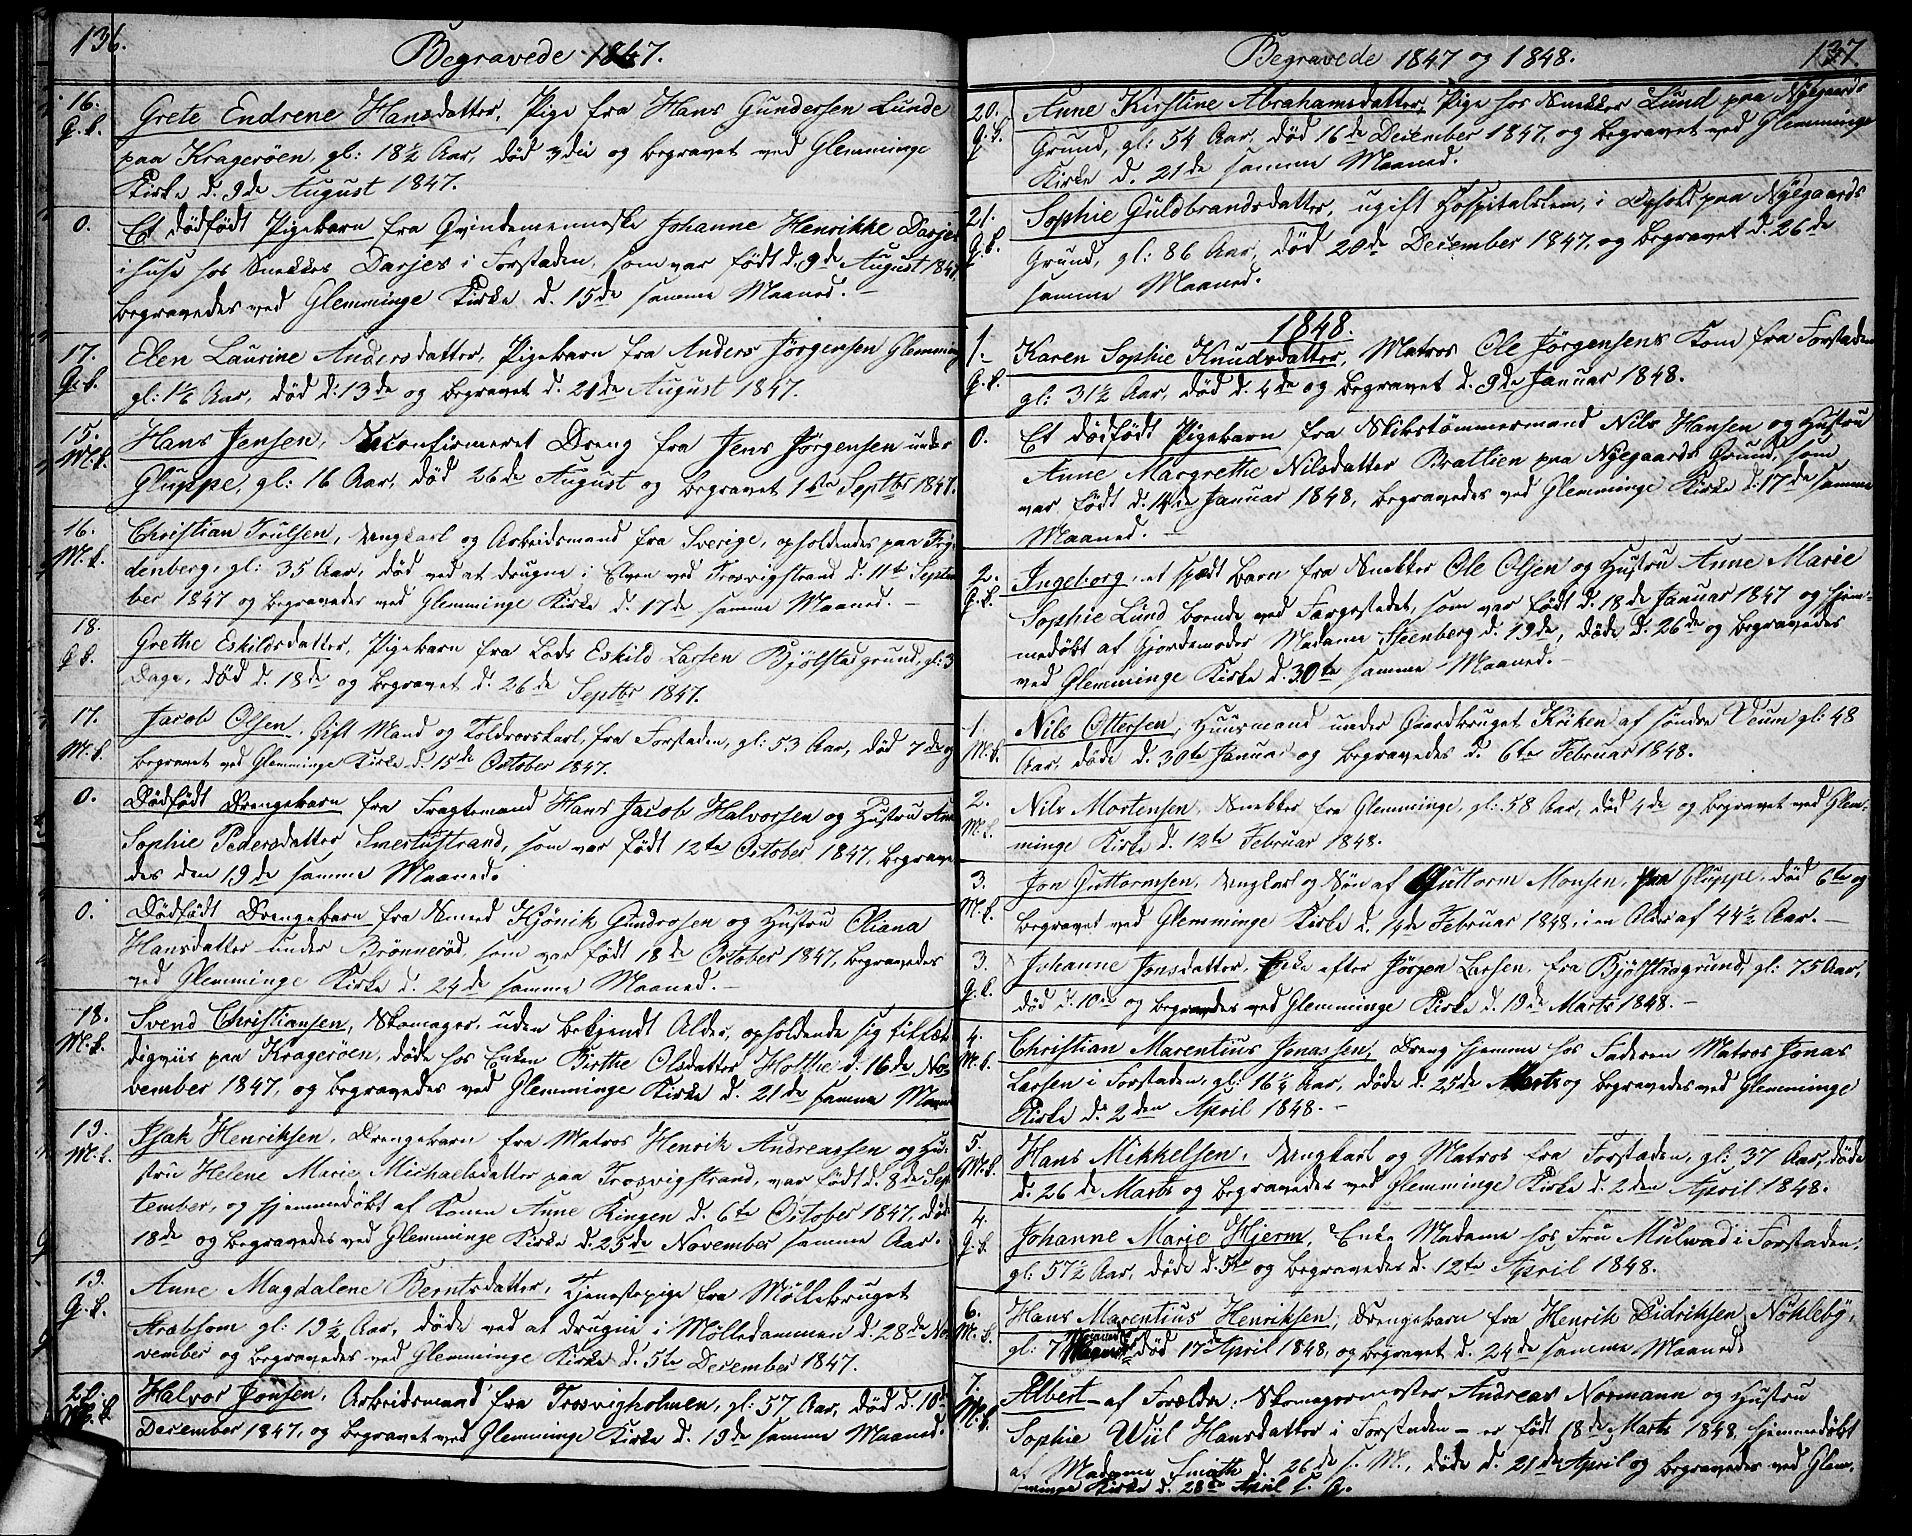 136.
Begravede 1847.
16. Q.K. Grete Endrene Hansdatter, Pige fra Hans Gundersen Lunde
paa Kragerøen, gl: 18½ Aar, død 3die og begravet ved Glemminge
Kirke d. 9de August 1847.
0. Et dødfødt Pigebarn fra Qvindemenneske Johanne Henrikke Darjes
i huse hos Snekker Darjes i Forstaden, som var født d. 9de August 1847,
begravedes ved Glemminge Kirke d. 15de samme Maaned. –
17. Q.K. Elen Laurine Andersdatter, Pigebarn fra Anders Jørgensen Glemminge
gl: 1½ Aar, død d. 13de og begravet d. 21de August 1847.
15. M.K. Hans Jensen, Uconfirmeret Dreng fra Jens Jørgensen under
Gluppe, gl: 16 Aar, død 26de August og begravet 1ste Septbr 1847.
16. M.K. Christian Trulsen, Ungkarl og Arbeidsmand fra Sverige, opholdendes paa
denberg, gl: 35 Aar, død ved at drugne i Elven ved Trosvigstrand d. 11te Septem
ber 1847 og begravedes ved Glemminge Kirke d. 17de samme Maaned. –
18. Q.K. Grethe Eskildsdatter, Pigebarn fra Lods Eskild Larsen Bjølstadgrund, gl: 3
Dage, død d. 18de og begravet d. 26de Septbr 1847.
17. M.K. Jacob Olsen, Gift Mand og Toldrorskarl, fra Forstaden, gl: 53 Aar, død 7de og
begravet ved Glemminge Kirke d. 15de October 1847.
0. Dødfødt Drengebarn fra Fragtemand Hans Jacob Halvorsen og Hustru Ane
Sophie Pedersdatter Smertustrand, som var født 12te October 1847, begrave
des den 19de samme Maaned.
0. Dødfødt Drengebarn fra Smed Hjønik Gundrosen og Hustru Oliana
Hansdatter under Brønnerød, som var født 18de October 1847, begravedes
ved Glemminge Kirke d. 24de samme Maaned. –
18. M.K. Svend Christiansen, Skomager, uden bekjendt Alder, opholdende sig
digviis paa Kragerøen, døde hos Enken Birthe Olsdatter Holthe d. 16de No
vember 1847, og begravedes ved Glemminge Kirke d. 21de samme Maaned
19. M.K. Isak Henriksen, Drengebarn fra Matros Henrik Andreassen og Hu
stru Helene Marie Michaelsdatter paa Trosvigstrand, var født d. 8de Sep
tember, og hjemmedøbt af Konen Anne Ringen d. 6te October 1847, døde
18de og begravedes ved Glemminge Kirke d. 25de November samme Aar.
19. Q.K. Anne Magdalene Berntsdatter, Tjenestepige fra Møllebruget
gl: 19½ Aar, døde ved at drugne i Mølledammen d. 28de No
vember og begravedes ved Glemminge Kirke d. 5te December 1847.
20. M.K. Halvor Jonsen, Arbeidsmand fra Trosvigholmen, gl: 57 Aar, død d. 10de
December 1847, og begravet ved Glemminge Kirke d. 19de samme Maaned.
137
Begravede 1847 og 1848.
20. Q.K. Anne Kirstine Abrahamsdatter, Pige hos Snekker Lund paa Nygaards
Grund, gl: 54 Aar, død 16de December 1847, og begravet ved Glemminge
Kirke d. 21de samme Maaned.
21. Q.K. Sophie Guldbrandsdatter, ugift Hospitalslem, i Ophold paa Nyegaards
Grund, gl: 86 Aar, død 20de December 1847, og begravet d. 26de
samme Maaned.
1848.
1. Q.K. Karen Sophie Knudsdatter, Matros Ole Jørgensens Kone fra Forstaden
gl: 31½ Aar, død d. 4de og begravet d. 9de Januar 1848.
0. Et dødfødt Pigebarn fra Skibstømmermand Nils Hansen og Hustru
Anne Margrethe Nilsdatter Bratlien paa Nyegaards Grund, som
var født d. 14de Januar 1848, begravedes ved Glemminge Kirke d. 17de samme
Maaned. –
2. Q.K. Ingeborg, et spædt Barn fra Snekker Ole Olsen og Hustru Anne Marie
Sophie Lund boende ved Færgestedet, som var født d. 18de Januar 1847 og hjem-
medøbt af Gjordemoder Madame Steenberg d. 19de, døde d. 26de og begravedes
ved Glemminge Kirke d. 30te samme Maaned. –
1. M.K. Nils Ottersen, Huusmand under Gaardbruget Kriken af søndre Veum gl: 48
Aar, døde d. 30te Januar og begravedes d. 6te Februar 1848.
2. M.K. Nils Mortensen, Snekker fra Glemminge, gl: 58 Aar, død 4de og begravet ved Glem-
minge Kirke d. 12te Februar 1848.
3. M.K. Jon Guttormsen, Ungkarl og Søn af Guttorm Monsen, fra Gluppe, død 6te og
begravet ved Glemminge Kirke d. 14de Februar 1848, i en Alder af 44½ Aar. –
3. Q.K. Johanne Jonsdatter, Enke efter Jørgen Larsen, fra Bjølstadgrund, gl: 75 Aar,
død d. 10de og begravedes ved Glemminge Kirke d. 19de Marts 1848. –
4. M.K. Christian Marentius Jonassen, Dreng hjemme hos Faderen Matros Jonas
Larsen i Forstaden, gl: 16½ Aar, døde d. 25de Marts og begravedes ved Glemminge
Kirke d. 2den April 1848. –
5. M.K. Hans Mikkelsen, Ungkarl og Matros fra Forstaden, gl: 37 Aar, døde
d. 26de Marts og begravedes ved Glemminge Kirke d. 2den April 1848.
4. Q.K. Johanne Marie Hjerm, Enke Madame hos Fru Mulvad i Forstaden,
gl: 57½ Aar, døde d. 5te og begravedes d. 12te April 1848.
6. M.K. Hans Marentius Henriksen, Drengebarn fra Henrik Didriksen Nøkleby,
gl: 7 Maaneder død 17de April 1848, og begravet d. 24de samme Maaned
7. M.K. Albert – af Forældre: Skomagermester Andreas Normann og Hustru
Sophie Wiil Hansdatter i Forstaden – er født 18de Marts 1848, hjemmedøbt
af Madame Smith d. 26de s. M., døde d. 21de April og begravedes ved Glem-
minge Kirke d. 28de April s. A.